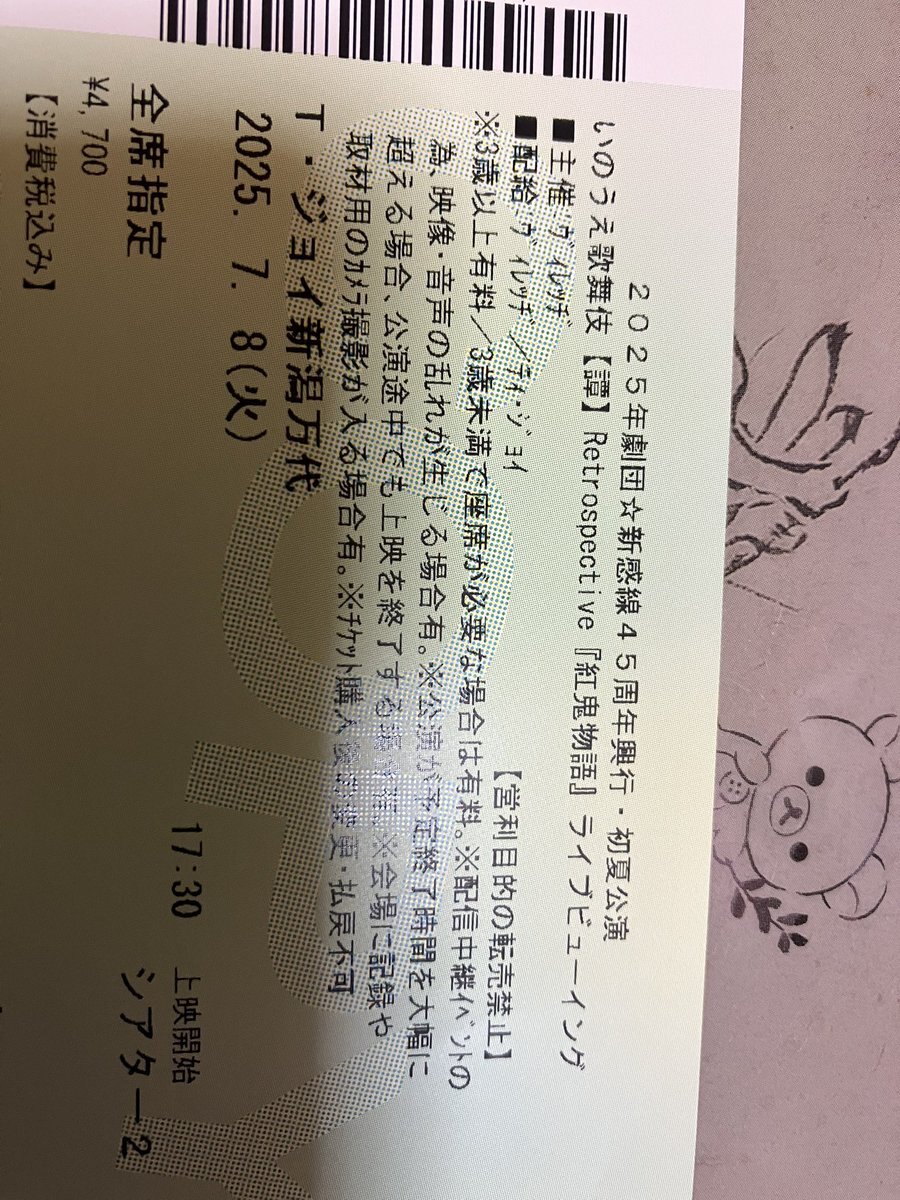 2025年劇団☆新感線45周年興行・初夏公演
いのうえ歌舞伎【譚】Retrospective『紅鬼物語』ライブビューイング
■主催 ヴィレッヂ
■配給 ヴィレッヂ/ティ・ジョイ 【営利目的の転売禁止】
※3歳以上有料/3歳未満で座席が必要な場合は有料。※配信中継イベントの
為、映像・音声の乱れが生じる場合有。※公演が予定終了時間を大幅に
超える場合、公演途中でも上映を終了する場合有。※会場に記録や
取材用のカメラ撮影が入る場合有。※チケット購入後の変更・払戻不可
T・ジョイ新潟万代
2025. 7. 8(火) 17:30 上映開始
全席指定 シアター2
¥4,700
【消費税込み】